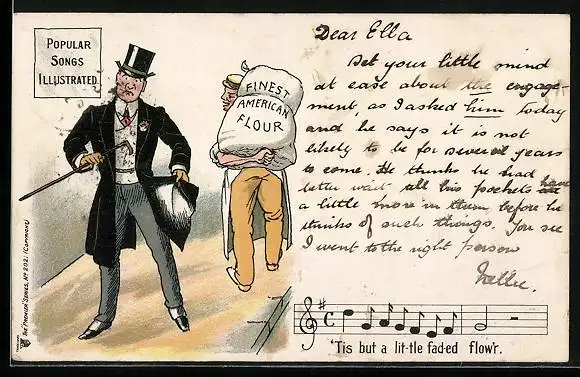 POPULAR
SONGS
ILLUSTRATED
FINEST
AMERICAN
FLOUR
Dear Ella
Set your little mind
at ease about the engage-
ment, as I asked him today
and he says it is not
likely to be for several years
to come. He thinks he had
better wait till his pockets have
a little more in them before he
thinks of such things. You see
I went to the right person
Nellie.
'Tis but a lit-tle fad-ed flow'r.
THE "PREMIER" SERIES, No 202. (COPYRIGHT)